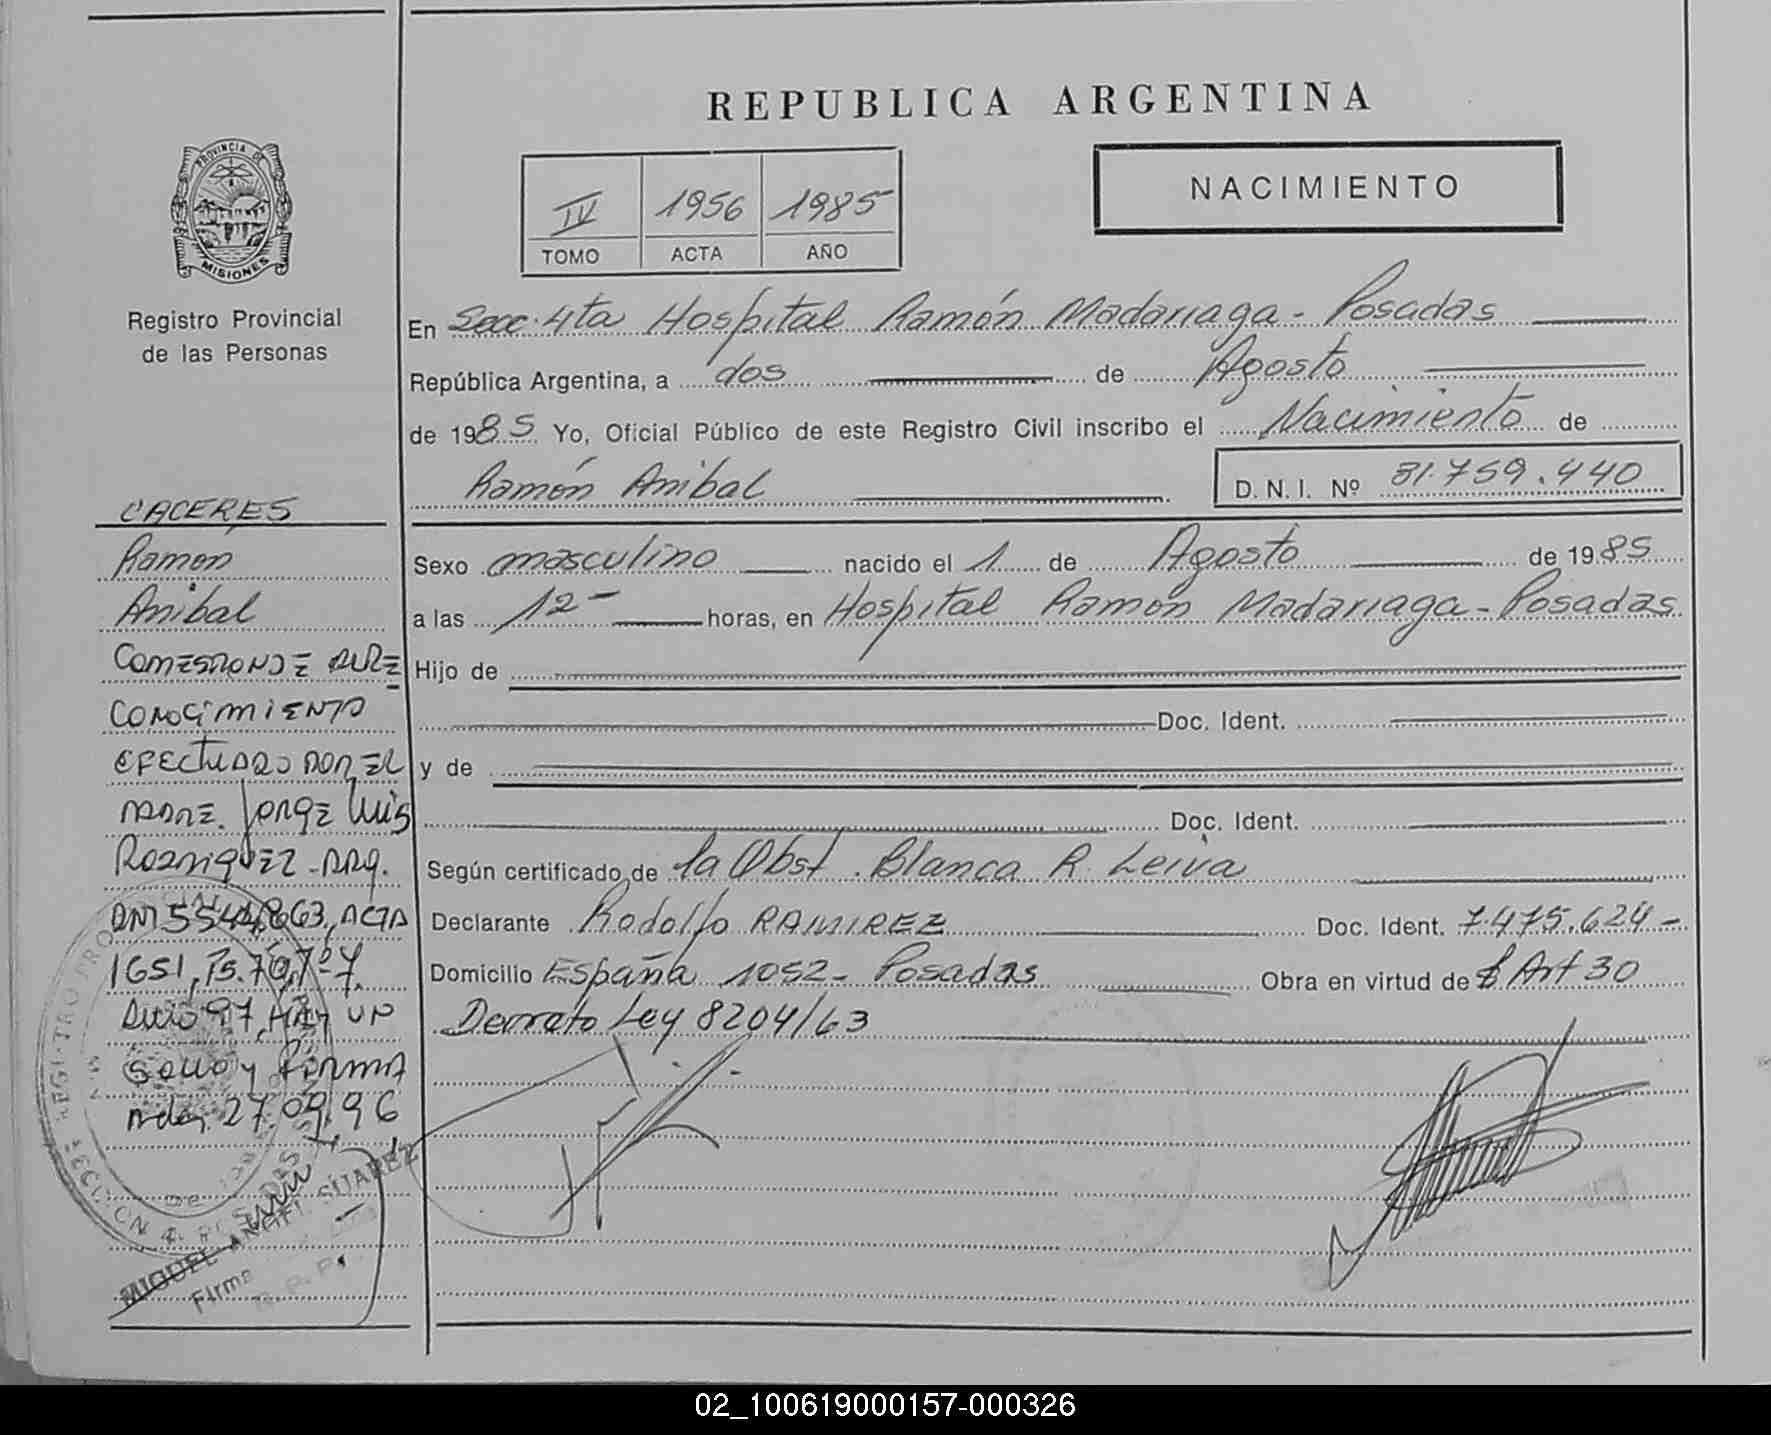 REPUBLICA ARGENTINA
PROVINCIA DE
MISIONES
Registro Provincial
de las Personas
IV 1956 1985
TOMO ACTA AÑO
NACIMIENTO
En Secc. 4ta Hospital Ramón Madariaga - Posadas
República Argentina, a dos de Agosto
de 1985 Yo, Oficial Público de este Registro Civil inscribo el Nacimiento de
Ramón Anibal
D. N. I. Nº 31.759.440
Sexo masculino nacido el 1 de Agosto de 1985
a las 12- horas, en Hospital Ramón Madariaga - Posadas.
Hijo de
Doc. Ident.
y de
Doc. Ident.
Según certificado de la Obst. Blanca R. Leiva
Declarante Rodolfo RAMIREZ Doc. Ident. 7.475.624-
Domicilio España 1052- Posadas Obra en virtud de Art 30
Decreto Ley 8204/63
CACERES
Ramón
Anibal
CORRESPONDE AL RE
CONOCIMIENTO
EFECTUADO POR EL
PADRE. Jorge Luis
Rodriguez - ARG.
DNI 5544863, ACTA
1651, Fs. 70, Tº 4.
Año 97, HAY UN
Sello y FIRMA
Pdas, 27.09.96
MIGUEL ANGEL SUAREZ
Firma
02_100619000157-000326